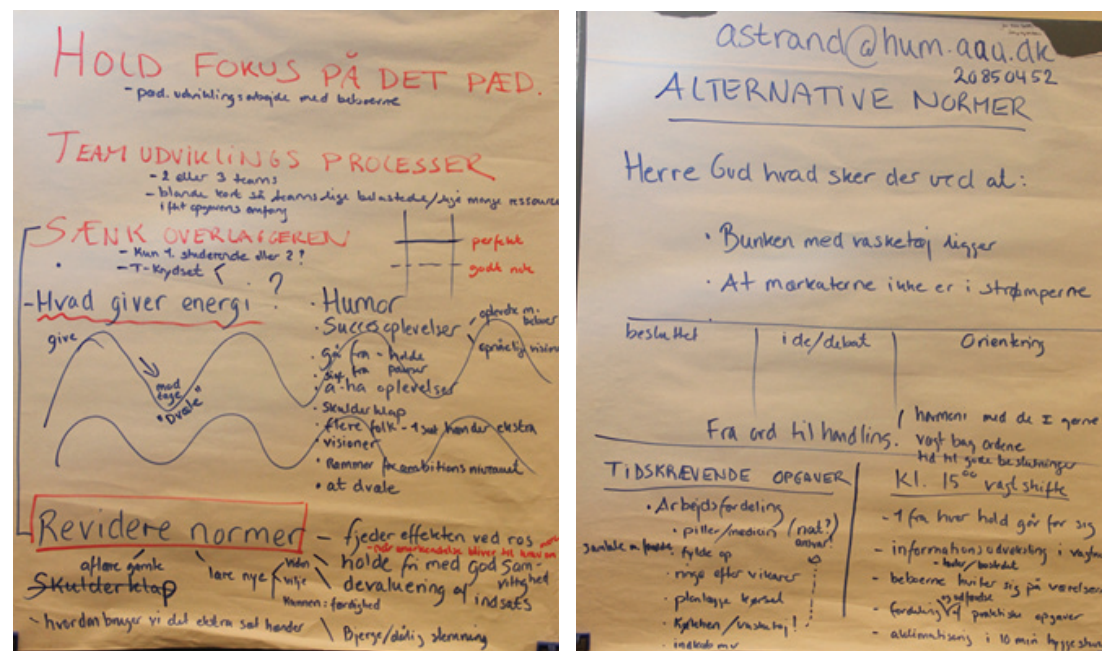 HOLD FOKUS PÅ DET PÆD.
- pæd. udviklingsarbejde med beboerne
TEAM UDVIKLINGS PROCESSER
- 2 eller 3 teams
- blande kort så teams lige belastede/lige mange ressourcer
i fht opgavens omfang
SÆNK OVERLIGGEREN
- Kun 1. studerende eller 2?
- T-Krydset
?
perfekt
godt nok
- Hvad giver energi
give
mod
dage
"Dvale"
· Humor
· Succesoplevelser
oplevelse m. beboer
opnåelig vision
· gå fra - holde
· sige fra pauser
· a-ha oplevelser
· skulderklap
· flere folk - 1 sæt hænder ekstra
· visioner
· Rammer for ambitions niveauet
· at dvale
Revidere normer
aflære gamle
lære nye
viden
vilje
Kunnen: færdighed
Skulderklap
- hvordan bruger vi det ekstra sæt hænder
- fjeder effekten ved ros
- når anerkendelse bliver til
holde fri med god sam-
vittighed
devaluering af
indsats
Bjerge/dårlig stemning
astrand@hum.aau.dk
20850452
ALTERNATIVE NORMER
Herre Gud hvad sker der ved at:
· Bunken med vasketøj ligger
· At mærkaterne ikke er i strømperne
besluttet
ide/debat
Orientering
Fra ord til handling.
harmoni med de I gerne
vægt bag ordene
tid til gode beslutninger
TIDSKRÆVENDE OPGAVER
· Arbejdsfordeling
· piller/medicin (nat?)
ansvar!
samtale m
· fylde op
· ringe efter vikarer
· planlægge kørsel
· Køkken/vasketøj!
· indkøb mv
Kl. 15⁰⁰ vagtskifte
- 1 fra hver hold går for sig
- informations udveksling i
- beboerne hviler sig på værelserne
- fordeling af praktiske opgaver
- aklimatisering i 10 min